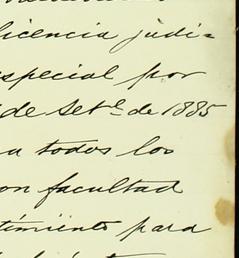 licencia judi=
especial por
de Set.e de 1885
a todos los
con facultad
timiento para